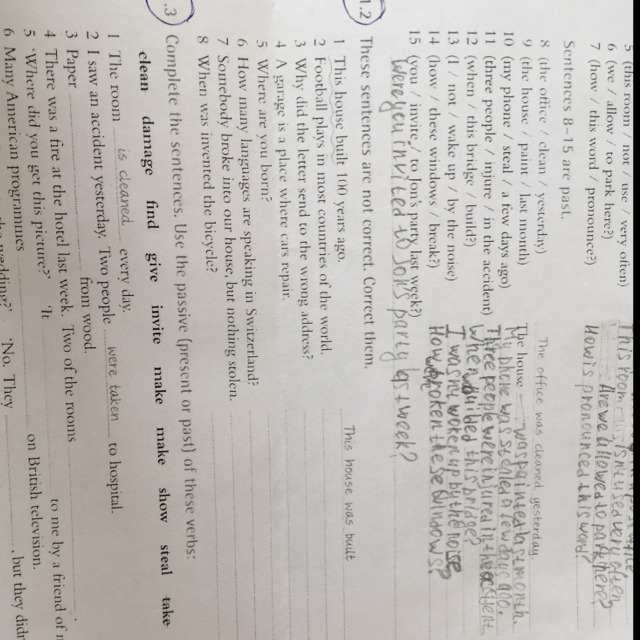 5 (this room / not / use / very often)
6 (we / allow / to park here?) Are we allowed to park here?
7 (how / this word / pronounce?) How is pronounced this word?
Sentences 8–15 are past.
8 (the office / clean / yesterday) The office was cleaned yesterday
9 (the house / paint / last month) The house was painted last month.
10 (my phone / steal / a few days ago) My phone was stealed a few days ago.
11 (three people / injure / in the accident) Three people were injured in the
12 (when / this bridge / build?) When builded this bridge?
13 (I / not / wake up / by the noise) I was woken up by the noise
14 (how / these windows / break?) How broken these windows?
15 (you / invite / to Jon's party last week?)
Were you invited to Jon's party last week?
1.2 These sentences are not correct. Correct them.
1 This house built 100 years ago. This house was built
2 Football plays in most countries of the world.
3 Why did the letter send to the wrong address?
4 A garage is a place where cars repair.
5 Where are you born?
6 How many languages are speaking in Switzerland?
7 Somebody broke into our house, but nothing stolen.
8 When was invented the bicycle?
.3 Complete the sentences. Use the passive (present or past) of these verbs:
clean damage find give invite make make show steal take
1 The room is cleaned every day.
2 I saw an accident yesterday. Two people were taken to hospital.
3 Paper from wood.
4 There was a fire at the hotel last week. Two of the rooms
5 'Where did you get this picture?' 'It to me by a friend of
6 Many American programmes on British television.
wedding?' 'No. They , but they didn